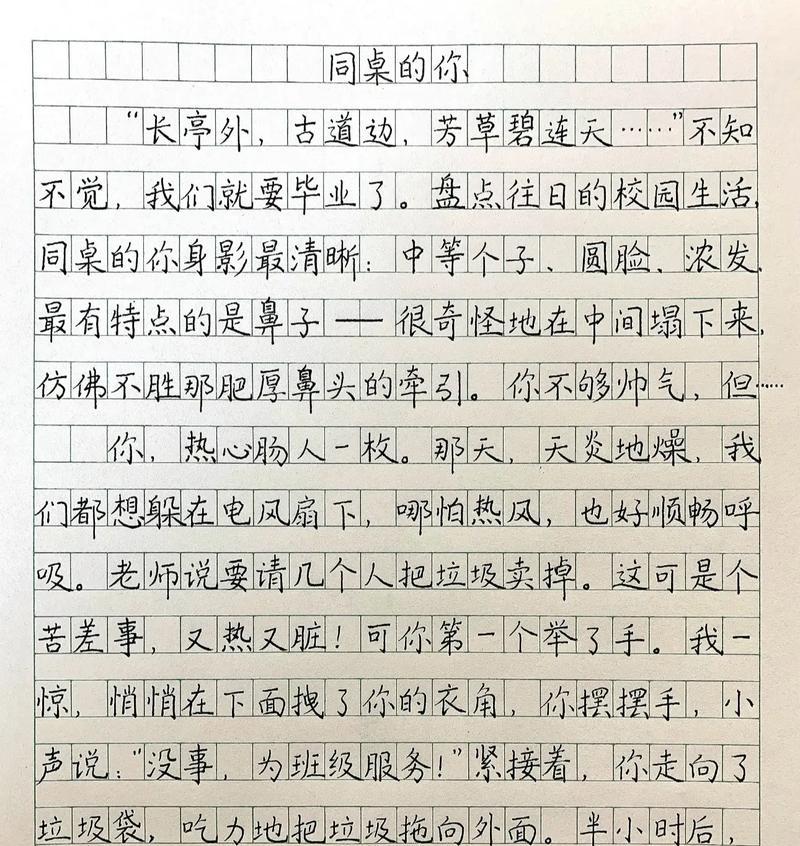 同桌的你
“长亭外，古道边，芳草碧连天……”不知
不觉，我们就要毕业了。盘点往日的校园生活，
同桌的你身影最清晰：中等个子、圆脸、浓发，
最有特点的是鼻子——很奇怪地在中间塌下来，
仿佛不胜那肥厚鼻头的牵引。你不够帅气，但……
你，热心肠人一枚。那天，天炎地燥，我
们都想躲在电风扇下，哪怕热风，也好顺畅呼
吸。老师说要请几个人把垃圾卖掉。这可是个
苦差事，又热又脏！可你第一个举了手。我一
惊，悄悄在下面拽了你的衣角，你摆摆手，小
声说：“没事，为班级服务！”紧接着，你走向了
垃圾袋，吃力地把垃圾拖向外面。半小时后，